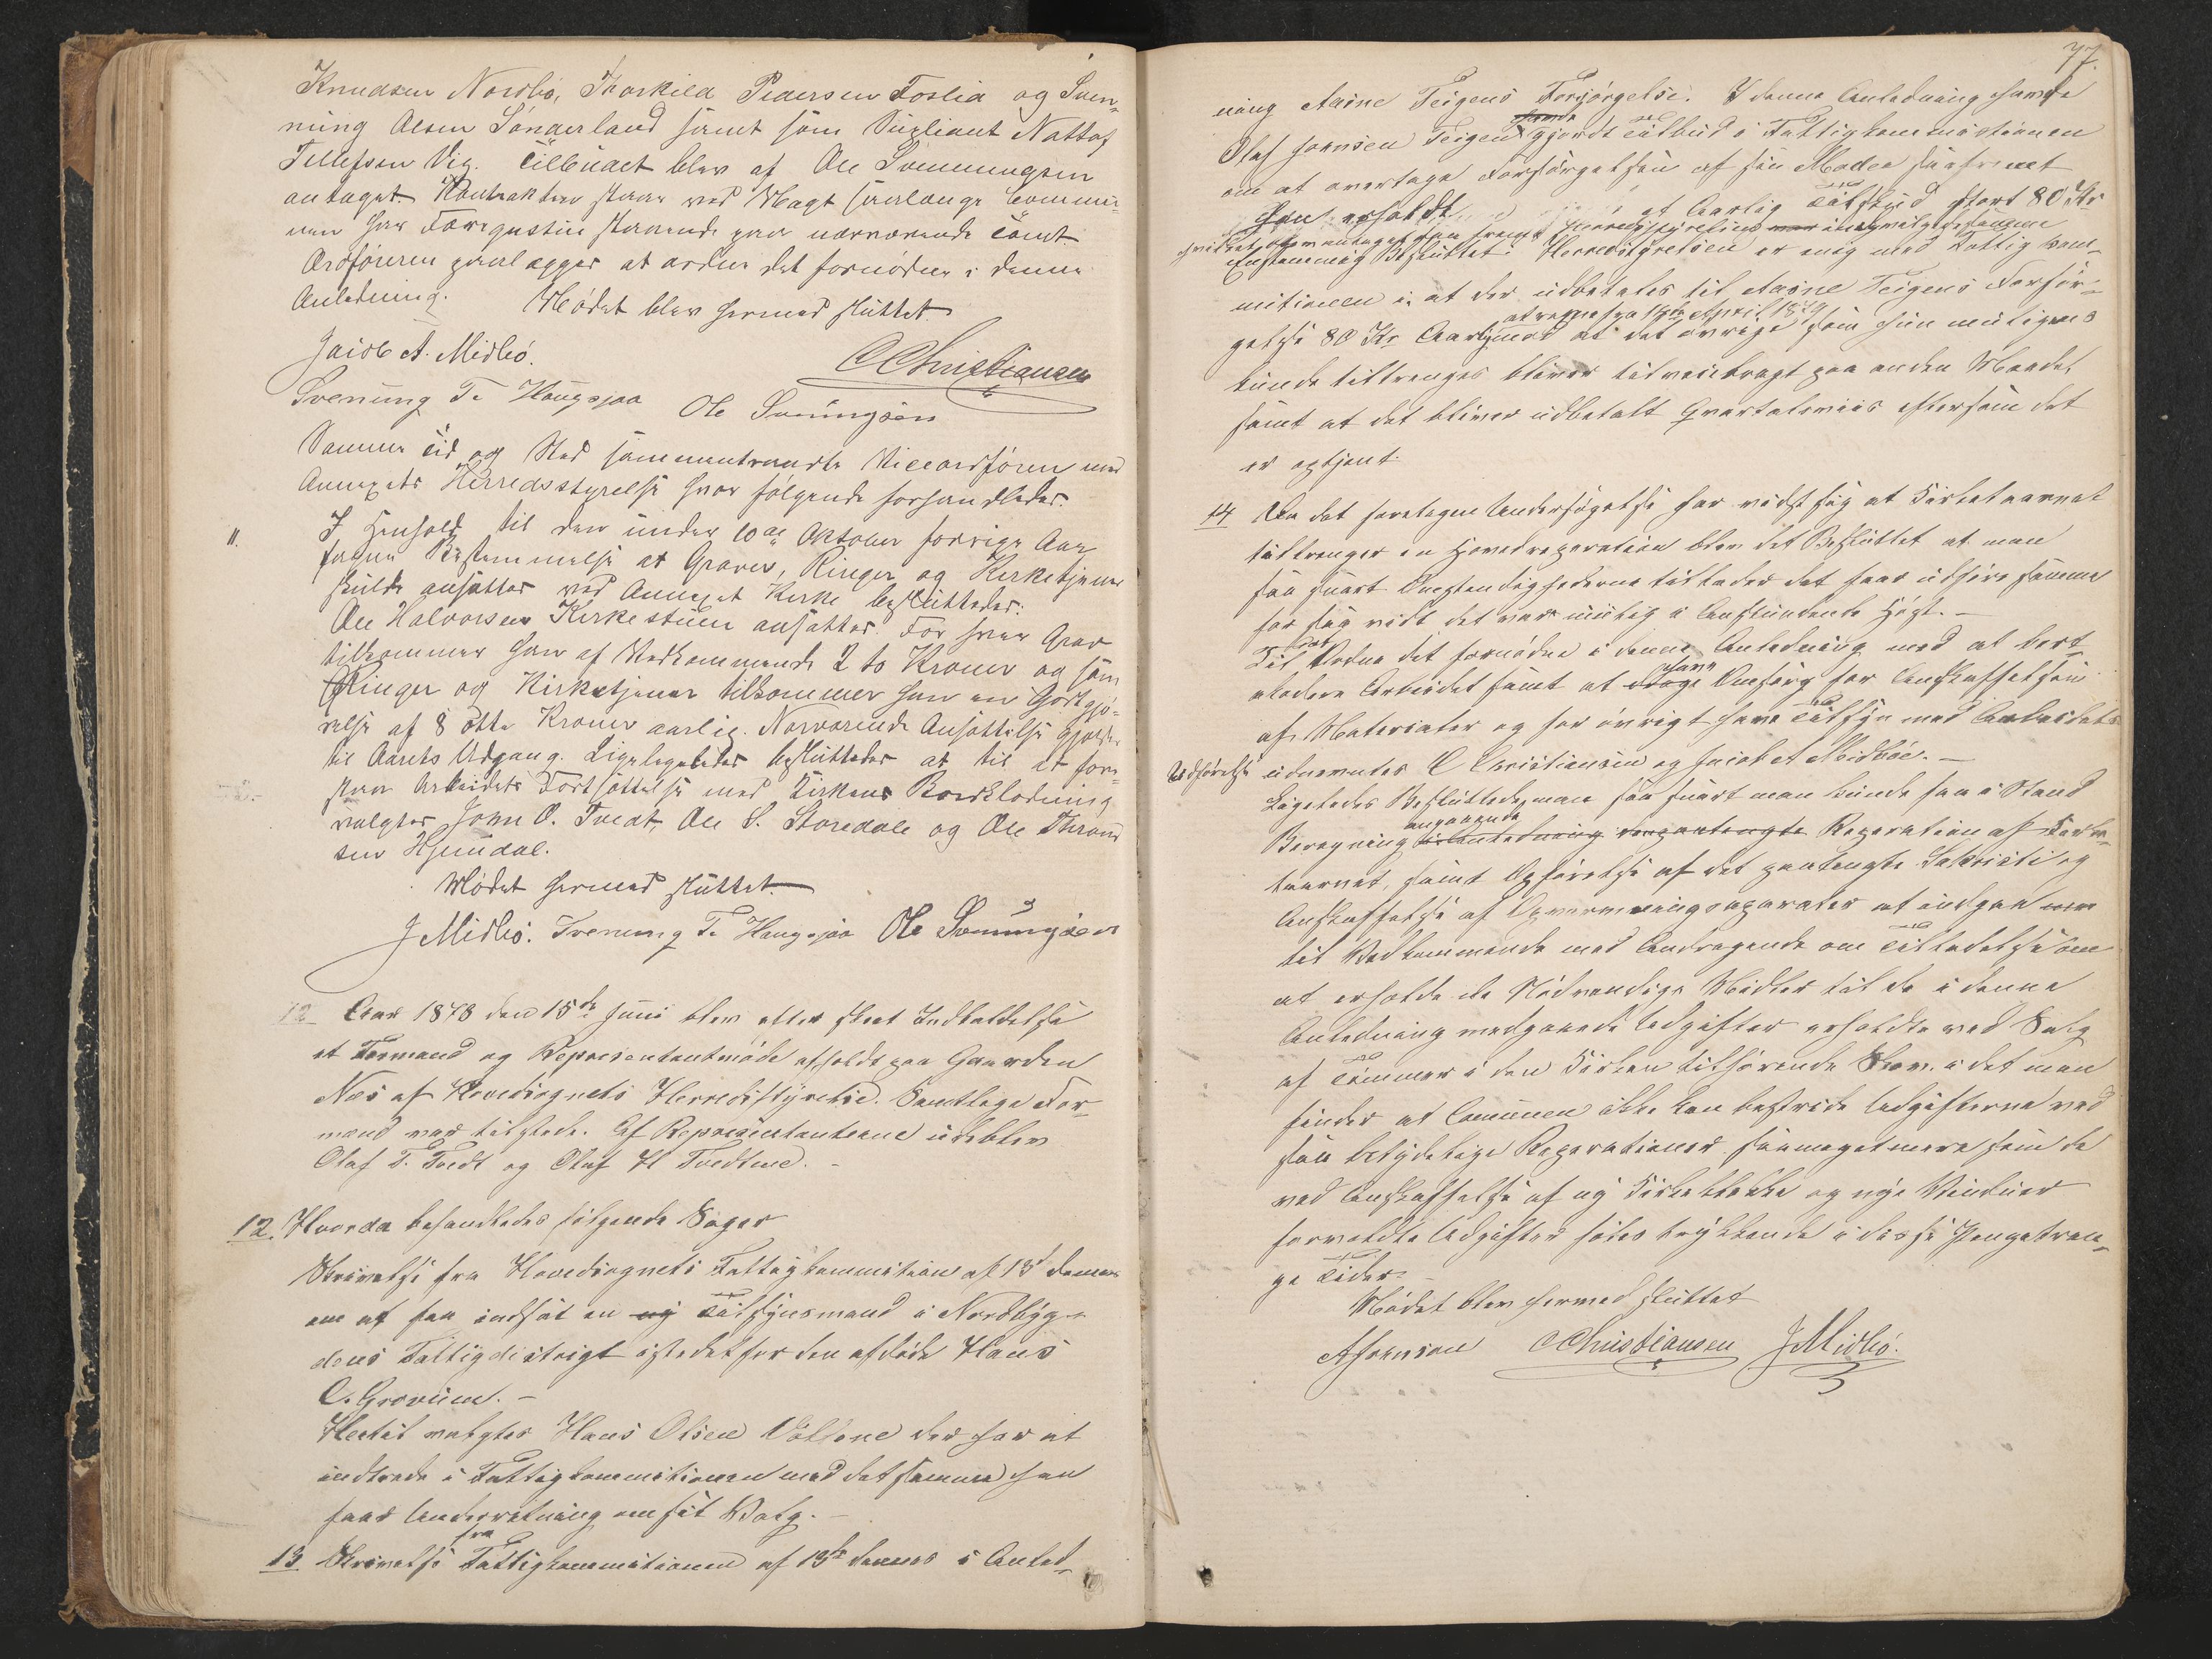 Knudsen Nordbø, Thorkild Pedersen Foslid og Sven-
ning Olsen Sønderland samt som Supliant Nottolf
Tellefsen Vig. Tilbudet blev af Ole Svenningsen
antaget. Kontrakten staar ved Magt saalænge Commu-
nen har Foreqvstiu staaende paa nærværende Tomt
Ordføreren paalægges at ordne det fornødne i denne
Anledning. Mødet blev hermed sluttet.
Jacob A. Midbø. CChristiansen
Svenung T. Haugsjaa Ole Svenningsen
Samme Tid og Sted sammentraadte Viceordføren med
Annexets Herredsstyrelse hvor følgende forhandledes.
11. I Henhold til den under 10de Oktober forrige Aar
fattede Bestemmelse at Graver, Ringer og Kirketjener
skulde ansættes ved Annexets Kirke besluttedes:
Ole Halvorsen Kirkestuen ansættes. For hver Grav
tilkommer han af Vedkommende 2 to Kroner og som
Ringer og Kirketjener tilkommer han en Godtgjø-
relse af 8 otte Kroner aarlig. Nærværende Ansættelse gjælder
til Aarets Udgang. Ligeledes besluttedes at til at fore-
staa Arbeidets Fortsættelse med Kirkens Bordklædning
valgtes John O. Tvedt, Ole S. Storedale og Ole Thrond
sen Hjemdal.
Mødet hermed sluttet.
J Midbø. Svenung T. Haugsjaa Ole Svenningsen
12 Aar 1878 den 15de Juni blev efter skeet Indkaldelse
et Formand og Representantmøde afholdt paa Gaarden
Næs af Hovedsognets Herredsstyrelse. Samtlige For-
mænd var tilstede. Af Representanterne udeblev
Olaf T. Tvedt og Olaf H Tvedtene. -
12. Hvorda behandledes følgende Sager
Skrivelse fra Hovedsognets Fattigkommission af 13de dennes
om at faa indsat en ny Tilsynsmand i Nordbyg-
dens Fattigdistrigt istedetfor den afdøde Hans
C. Grovum. -
Hertil valgtes Hans Olsen Vøllene der har at
indtræde i Fattigkommissionen med det samme han
faar Underretning om sit Valg. -
13 Skrivelse fra Fattigkommissionen af 13de dennes i Anled-
77.
ning Aasne Teigens Forsørgelse. I denne Anledning havde
Olaf Johnsen Teigen havde gjort Tilbud i Fattigkommissionen
om at overtage Forsørgelsen af sin Moder saafremt
han erholdt et Aarlig Tilskud stort 80 Kr
hvilket blev antaget saa fremt Herredsstyrelsen indvilgede samme
Enstemmig Besluttet: Herredsstyrelsen er enig med Fattigkom-
missionen i at der udbetales til Aasne Teigens Forsør-
gelse 80 Kr Aarlig at regne fra 14de April 1879 med at det øvrige som hun muligens
kunde tiltrenges bliver tilveiebragt paa anden Maade,
samt at det bliver udbetalt Qvartalsviis eftersom det
er optjent.
14 Da det foretagen Undersøgelse har viist sig at Kirketaarnet
tiltrænger en Hovedreparation blev det Besluttet at man
saa snart Omstændighederne tillader det faar udføre samme
for saa vidt det var mulig i Anstundende Høst. -
Til at Ordne det fornødne i denne Anledning med at bort-
akordere Arbeidet samt at drage have Omsorg for Anskaffelsen
af Materialer og for øvrigt have Tilsyn med Arbeidets
Udførelse udnævntes C Christiansen og Jacob A Midbøe. -
Ligeledes Besluttedes man saa snart man kunde faa i Stand
Beregning i Anledning angaaende paatænkte Reparation af Kirke-
taarnet, samt Opførelse af det paatengte Sakristi og
Anskaffelse af Opvarmningsaparater at indgaa
til Vedkommende med Andragende om Tilladelse om
at erholde de Nødvendige Midler til de i denne
Anledning medgaaende Udgifter erholdte ved Salg
af Tømmer i den Kirken tilhørende Skov. i det man
finder at Comunen ikke kan bestride Udgifterne ved
saa betydelige Reparationer saameget mere som de
ved Anskaffelse af ny Kirkeklokke og nye Vinduer
forvoldte Udgifter føles trykkende i disse Pengetran-
ge Tider.
Mødet blev hermed sluttet
AJohnsen CChristiansen JMidbø.